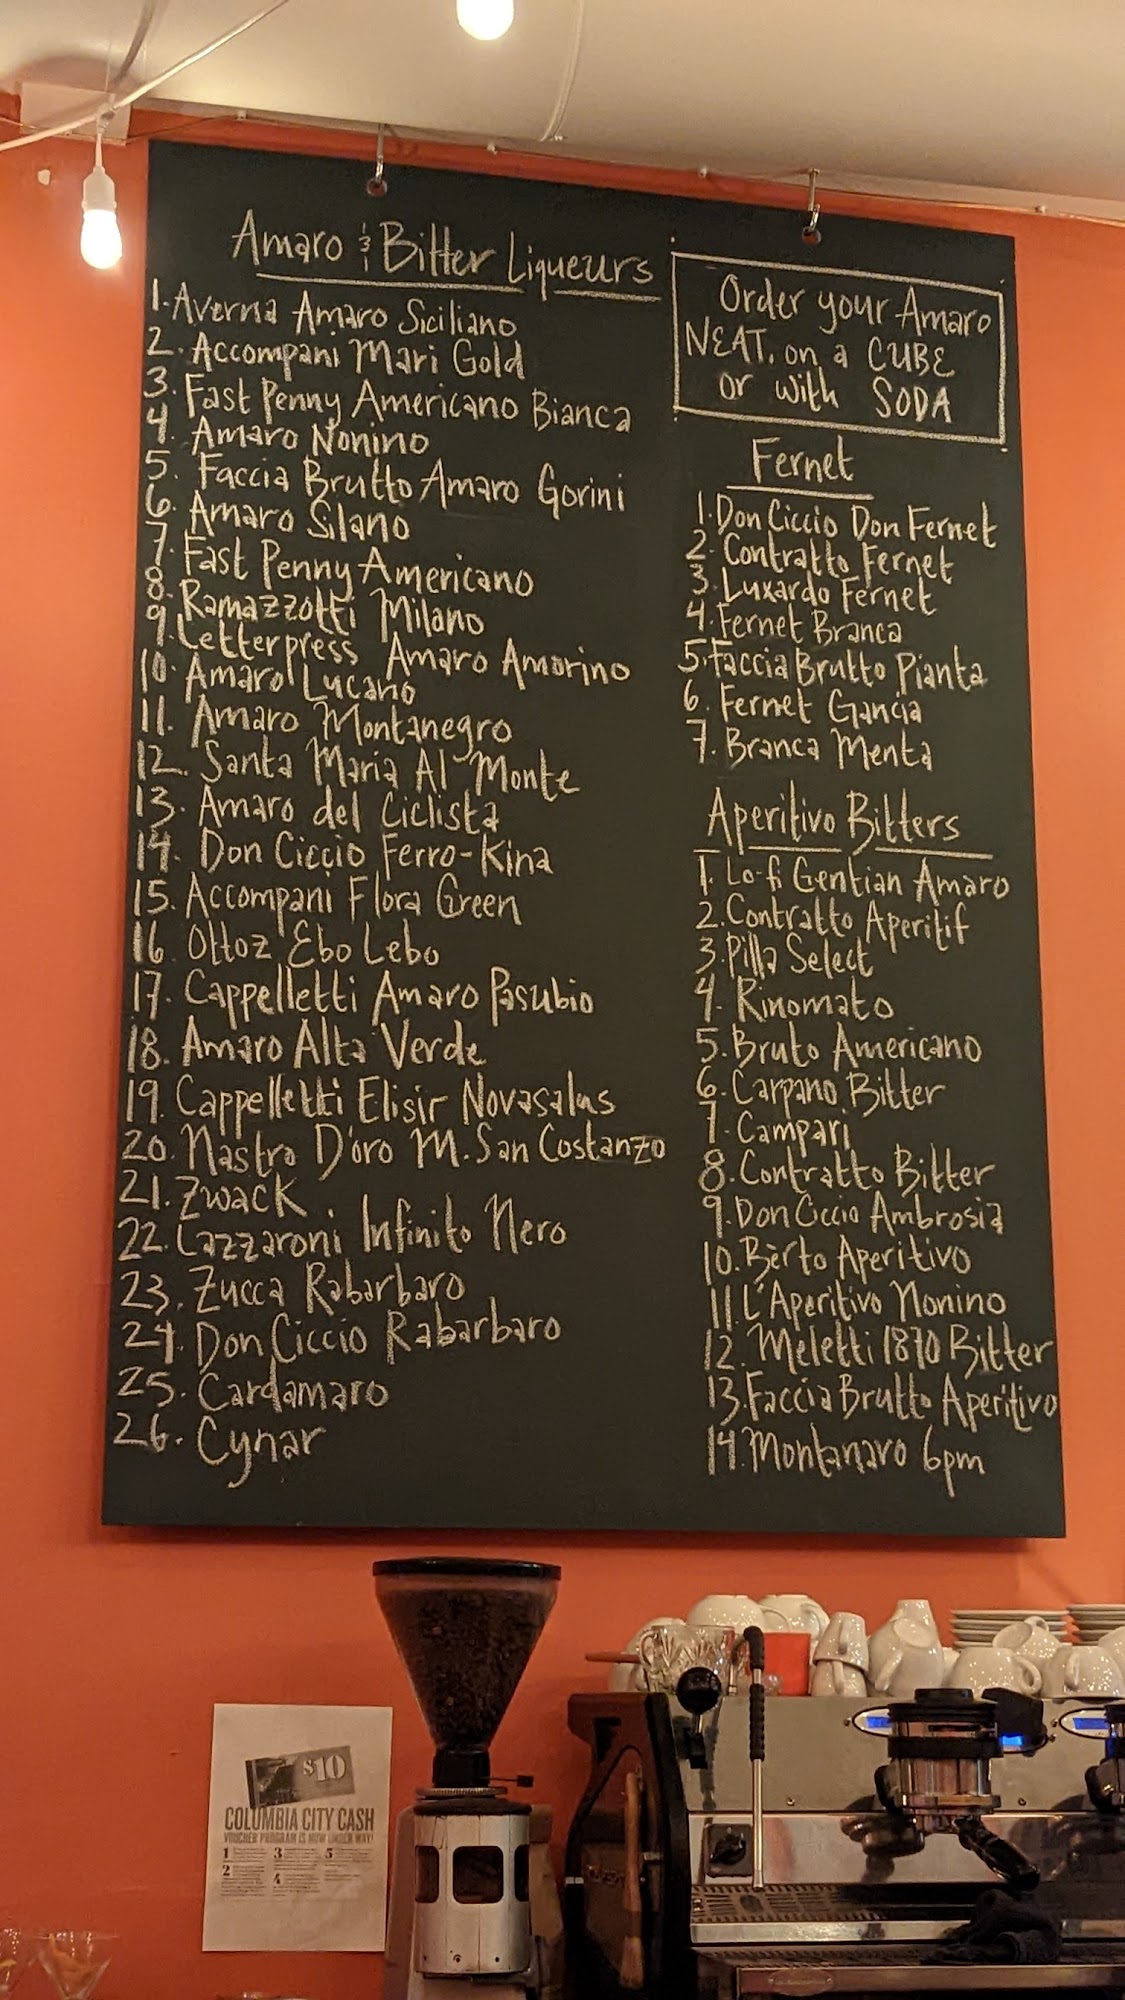 Amaro & Bitter Liqueurs
1. Averna Amaro Siciliano
2. Accompani Mari Gold
3. Fast Penny Americano Bianca
4. Amaro Nonino
5. Faccia Brutto Amaro Gorini
6. Amaro Silano
7. Fast Penny Americano
8. Ramazzotti Milano
9. Letterpress Amaro Amorino
10. Amaro Lucano
11. Amaro Montanegro
12. Santa Maria Al Monte
13. Amaro del Ciclista
14. Don Ciccio Ferro-Kina
15. Accompani Flora Green
16. Ottoz Ebo Lebo
17. Cappelletti Amaro Pasubio
18. Amaro Alta Verde
19. Cappelletti Elisir Novasalus
20. Nastro D'oro M. San Costanzo
21. Zwack
22. Lazzaroni Infinito Nero
23. Zucca Rabarbaro
24. Don Ciccio Rabarbaro
25. Cardamaro
26. Cynar
Order your Amaro
NEAT, on a CUBE
or with SODA
Fernet
1. Don Ciccio Don Fernet
2. Contratto Fernet
3. Luxardo Fernet
4. Fernet Branca
5. Faccia Brutto Pianta
6. Fernet Gancia
7. Branca Menta
Aperitivo Bitters
1. Lo-fi Gentian Amaro
2. Contratto Aperitif
3. Pilla Select
4. Rinomato
5. Bruto Americano
6. Carpano Bitter
7. Campari
8. Contratto Bitter
9. Don Ciccio Ambrosia
10. Bèrto Aperitivo
11. L'Aperitivo Nonino
12. Meletti 1870 Bitter
13. Faccia Brutto Aperitivo
14. Montanaro 6pm
$10
COLUMBIA CITY CASH
VOUCHER PROGRAM IS NOW UNDER WAY!
1
2
3
4
5